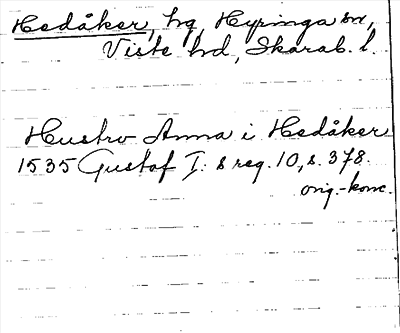 Hedåker, hg, Hyringa sn,
Viste hd, Skarab. l.
Hustro Anna i Hedåker
1535 Gustaf I:s reg. 10, s. 378.
orig.-konc.